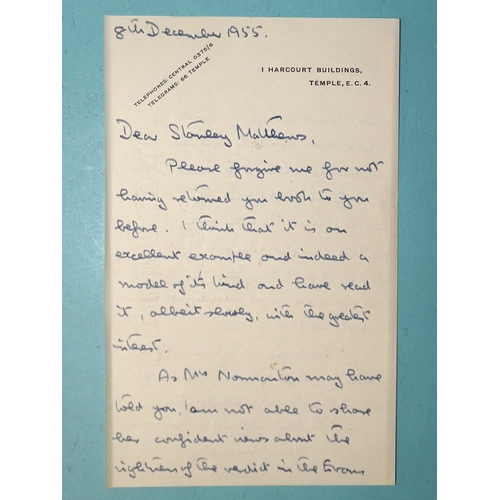 8th December 1955.
TELEPHONES: CENTRAL 0375/6
TELEGRAMS: 66 TEMPLE
1 HARCOURT BUILDINGS,
TEMPLE, E.C. 4.
Dear Stanley Matthews,
Please forgive me for not
having returned you book to you
before. I think that it is an
excellent example and indeed a
model of its kind and have read
it, albeit slowly, with the greatest
interest.
As Mrs Normanton may have
told you, I am not able to share
her confident views about the
rightness of the verdict in the Evans